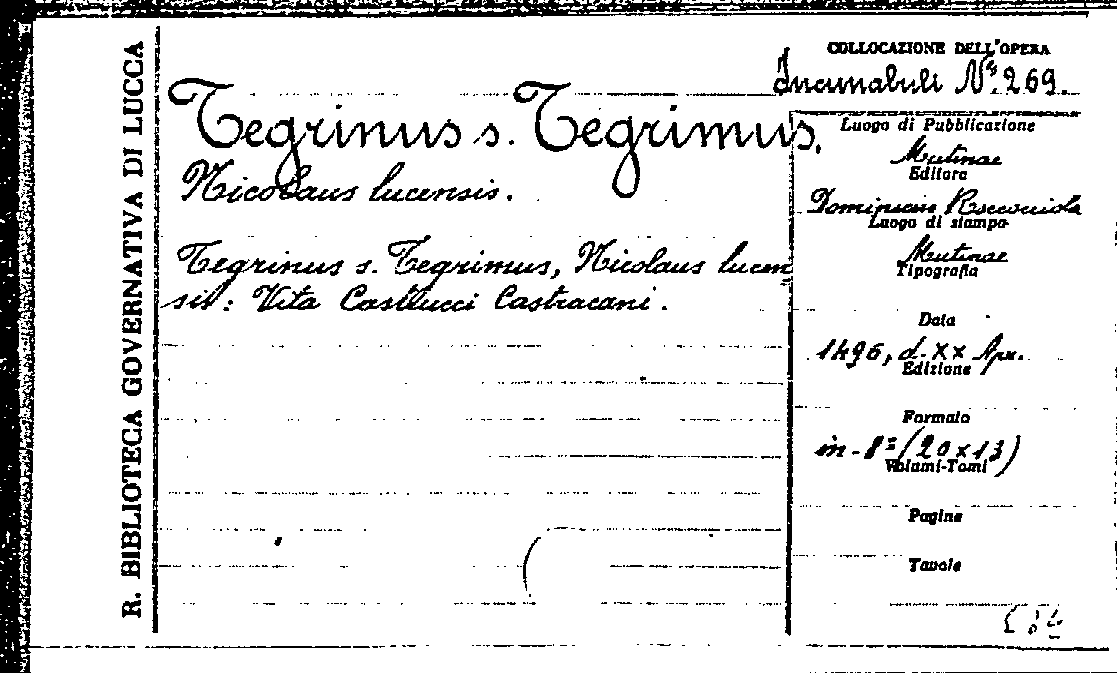 R. BIBLIOTECA GOVERNATIVA DI LUCCA
COLLOCAZIONE DELL'OPERA
Incunabuli Nº 269.
Tegrinus s. Tegrimus.
Nicolaus lucensis.
Tegrinus s. Tegrimus, Nicolaus lucen
sis: Vita Castrucci Castracani.
Luogo di Pubblicazione
Mutinae
Editore
Luogo di stampa
Mutinae
Tipografia
Data
1496, d. XX Apr.
Edizione
Formato
in-8º (20 x 13)
Volumi-Tomi
Pagine
Tavole